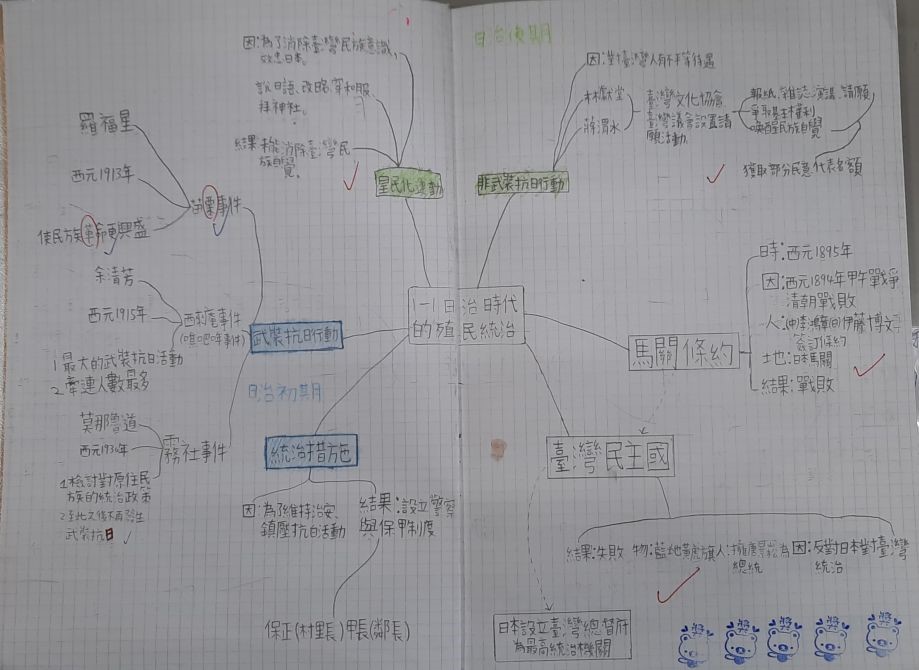 1-1日治時代
的殖民統治
馬關條約
時:西元1895年
因:西元1894年甲午戰爭
清朝戰敗
人:(中)李鴻章(日)伊藤博文
簽訂條約
土地:日本馬關
結果:戰敗
臺灣民主國
結果:失敗
物:藍地黃虎旗
人:擁唐景崧為
總統
因:反對日本對臺灣
統治
日本設立臺灣總督府
為最高統治機關
日治初期
統治措施
因:為了維持治安、
鎮壓抗日活動
結果:設立警察
與保甲制度
保正(村里長)甲長(鄰長)
武裝抗日行動
苗栗事件
羅福星
西元1913年
使民族革命更興盛
西來庵事件
(噍吧哖事件)
余清芳
西元1915年
1.最大的武裝抗日活動
2.牽連人數最多
霧社事件
莫那魯道
西元1930年
1.檢討對原住民
族的統治政策
2.至此之後不再發生
武裝抗日
日治後期
皇民化運動
因:為了消除臺灣民族意識,
效忠日本。
說日語、改姓名、穿和服、
拜神社。
結果:未能消除臺灣民
族自覺。
非武裝抗日行動
因:對臺灣人有不平等待遇
林獻堂
蔣渭水
臺灣文化協會
臺灣議會設置請
願活動
報紙、雜誌、演講、請願
爭取基本權利
喚醒民族自覺
獲取部分民意代表名額
獎
獎
獎
獎
獎